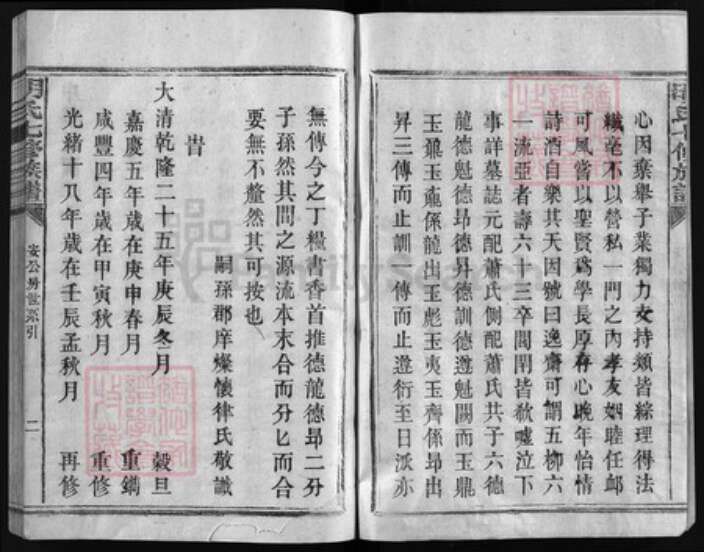 心因棄舉子業獨力支持頹皆綜理得法
纖毫不以營私一門之內孝友姻睦任卹
可風嘗以聖賢爲學長厚存心晚年怡情
詩酒自樂其天因號曰逸齋可謂五柳六
一流亞者壽六十三卒閭閈皆欷噓泣下
事詳墓誌元配蕭氏側配蕭氏共子六德
龍德魁德昻德昇德訓德遵魁闕而玉鼎
玉鼐玉鼒係龍出玉彪玉夷玉齊係昻出
昇三傳而止訓一傳而止遵衍至日派亦
無傳今之丁糧書香首推德龍德昻二分
子孫然其間之源流本末合而分匕而合
要無不釐然其可按也
嗣孫郡庠燦懷律氏敬識
旹
大清乾隆二十五年庚辰冬月 穀旦
嘉慶五年歲在庚申春月 重鐫
咸豐四年歲在甲寅秋月 重修
光緒十八年歲在壬辰孟秋月 再修
胡氏七修族譜
安公房世系引
二